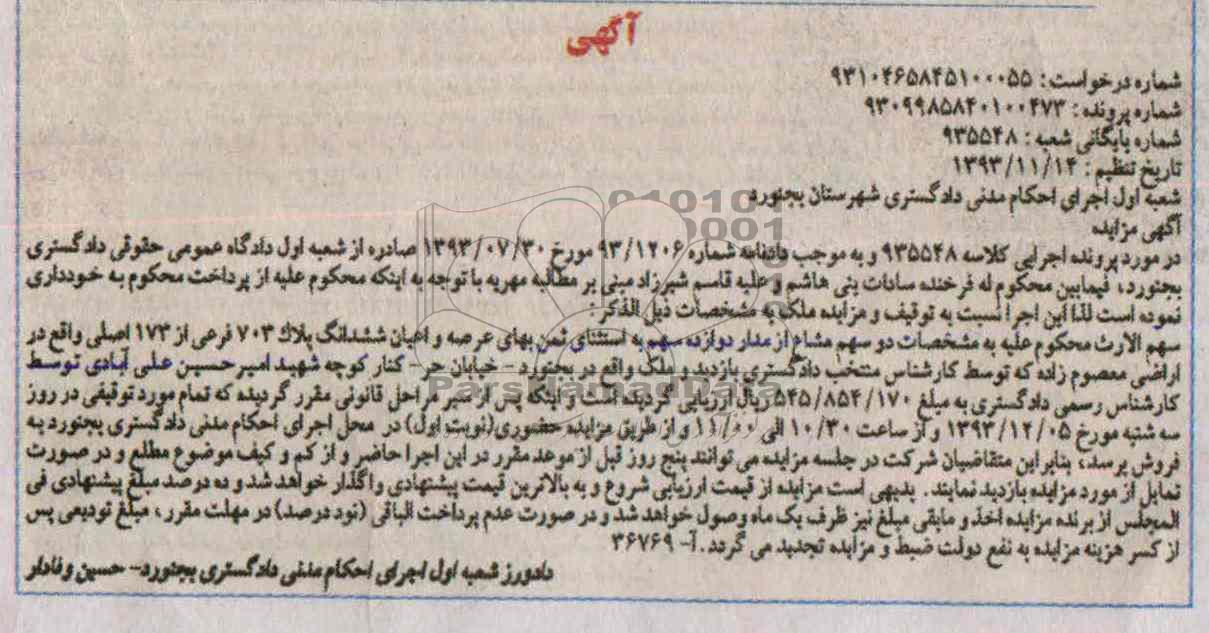 آگهی
شماره درخواست: ۹۳۱۰۴۶۵۸۴۵۱۰۰۰۵۵
شماره پرونده: ۹۳۰۹۹۸۵۸۴۰۱۰۰۴۷۳
شماره بایگانی شعبه: ۹۳۵۵۴۸
تاریخ تنظیم: ۱۳۹۳/۱۱/۱۴
شعبه اول اجرای احکام مدنی دادگستری شهرستان بجنورد
آگهی مزایده
در مورد پرونده اجرایی کلاسه ۹۳۵۵۴۸ و به موجب دادنامه شماره ۹۳/۱۲۰۶ مورخ ۱۳۹۳/۰۷/۳۰ صادره از شعبه اول دادگاه عمومی حقوقی دادگستری
بجنورد، فیمابین محکوم له فرخنده سادات بنی هاشم و علیه قاسم شیرزاد مبنی بر مطالبه مهریه با توجه به اینکه محکوم علیه از پرداخت محکوم به خودداری
نموده است لذا این اجرا نسبت به توقیف و مزایده ملک به مشخصات ذیل الذکر:
سهم الارث محکوم علیه به مشخصات دو سهم مشاع از مدار دوازده سهم به استثنای ثمن بهای عرصه و اعیان ششدانگ پلاک ۷۰۳ فرعی از ۱۷۳ اصلی واقع در
اراضی معصوم زاده که توسط کارشناس منتخب دادگستری بازدید و ملک واقع در بجنورد - خیابان حر- کنار کوچه شهید امیرحسین علی آبادی توسط
کارشناس رسمی دادگستری به مبلغ ۵۴۵/۸۵۴/۱۷۰ ریال ارزیابی گردیده است و اینکه پس از سیر مراحل قانونی مقرر گردیده که تمام مورد توقیفی در روز
سه شنبه مورخ ۱۳۹۳/۱۲/۰۵ و از ساعت ۱۰/۳۰ الی ۱۱/۰۰ و از طریق مزایده حضوری(نوبت اول) در محل اجرای احکام مدنی دادگستری بجنورد به
فروش برسد، بنابراین متقاضیان شرکت در جلسه مزایده می توانند پنج روز قبل از موعد مقرر در این اجرا حاضر و از کم و کیف موضوع مطلع و در صورت
تمایل از مورد مزایده بازدید نمایند. بدیهی است مزایده از قیمت ارزیابی شروع و به بالاترین قیمت پیشنهادی واگذار خواهد شد و ده درصد مبلغ پیشنهادی فی
المجلس از برنده مزایده اخذ و مابقی مبلغ نیز ظرف یک ماه وصول خواهد شد و در صورت عدم پرداخت الباقی (نود درصد) در مهلت مقرر، مبلغ تودیعی پس
از کسر هزینه مزایده به نفع دولت ضبط و مزایده تجدید می گردد. آ- ۳۶۷۶۹
دادورز شعبه اول اجرای احکام مدنی دادگستری بجنورد- حسین وفادار
ParsNamadData